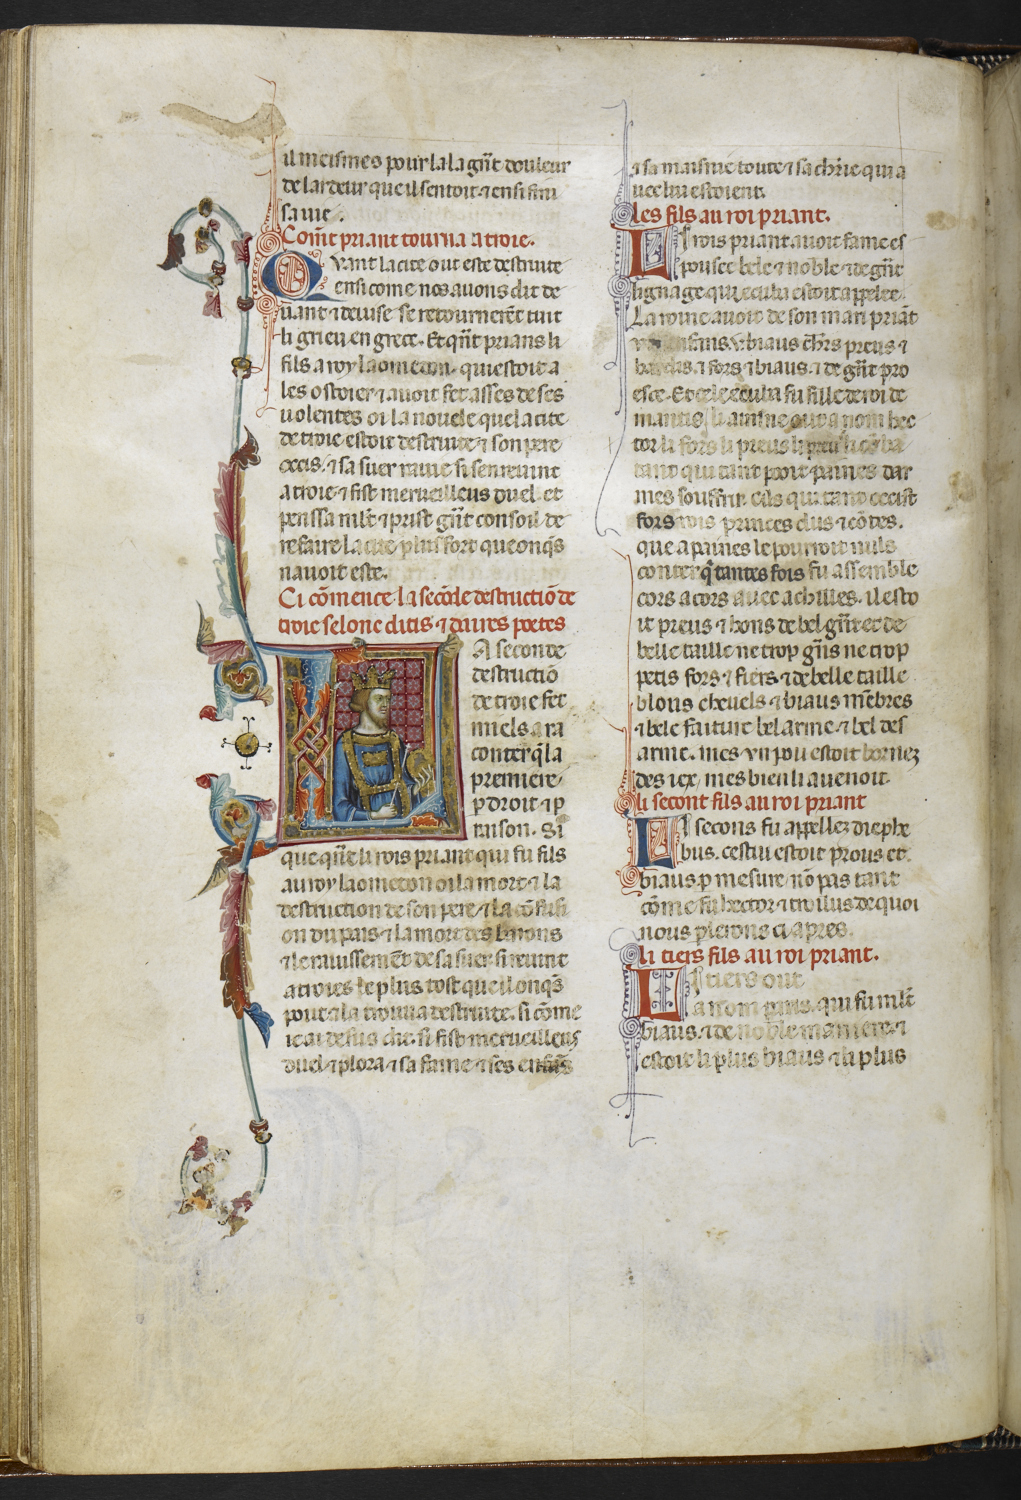 il meismes pour la la gñt douleur
de lardeur que il sentoit ⁊ ensi fini
sa uie.
Com̃t priant tourna a troie.
Quant la cite out este destruite
ensi come nos auons dit de
uant ⁊ deuise se retournerẽt tuit
li grieu en grece. Et qñt prians li
fils a roy laomedon. qui estoit a
les ostoier ⁊ auoit fet asses de ses
uolentes oi la nouele que la cite
de troie estoit destruite ⁊ son pere
occis. ⁊ sa suer rauie si sen reuint
a troie ⁊ fist merueilleus duel. et
penssa ml̃t ⁊ prist gñt conseil de
refaire la cite plus fort que onq̃s
nauoit este.
Ci cõmence la secõde destructiõ de
troie selonc ditis ⁊ daires poetes
La seconde
destructiõ
de troie fet
miels a ra
conter q̃ la
premiere
p droit ⁊ p
raison. Si
que qñt li rois priant qui fu fils
au roy laomedon oi la mort ⁊ la
destruction de son pere ⁊ la cõfusi
on du pais ⁊ la mort des barons
⁊ le rauissemẽt de sa suer si reuint
a troies le plus tost que il onq̃s
pout ⁊ la trouua destruite. si cõme
ie ai desus dit. si fist merueilleus
duel ⁊ plora ⁊ sa fame ⁊ ses enfãs
⁊ sa maisnie toute ⁊ sa chr̃ie qui a
uec lui estoient.
Les fils au roi priant.
Li rois priant auoit fame es
pousee bele ⁊ noble ⁊ de gñt
lignage qui ecuba estoit appelee.
La roine auoit de son mari priãt
enfans biaus chr̃s preus ⁊
⁊ fors ⁊ biaus. ⁊ de gñt pro
esce. Et cele ecuba fu fille de roi de
li ainsne out a nom hec
tor li fors li preus li
tant qui tant pooit paines dar
mes souffrir. cils qui tant occist
fors rois princes dus ⁊ cõtes.
que a paines le pourroit nuls
conter q̃ tantes fois fu assemble
cors a cors auec achilles. il esto
it preus ⁊ bons de bel gñt et de
belle taille ne trop gñs ne trop
petis fors ⁊ fiers ⁊ de belle taille
blons cheuels ⁊ biaus mẽbres
⁊ bele faiture bel arme ⁊ bel des
arme. mes vn pou estoit bornez
des iex. mes bien li auenoit.
li secont fils au roi priant
Li secons fu appellez diephe
bus. cestui estoit prous et
biaus p mesure. nõ pas tant
cõme fu hector ⁊ troilus de quoi
nous plerons ci apres.
li tiers fils au roi priant.
Li tiers out
a nom paris. qui fu ml̃t
biaus. ⁊ de noble maniere ⁊
estoit li plus biaus ⁊ li plus